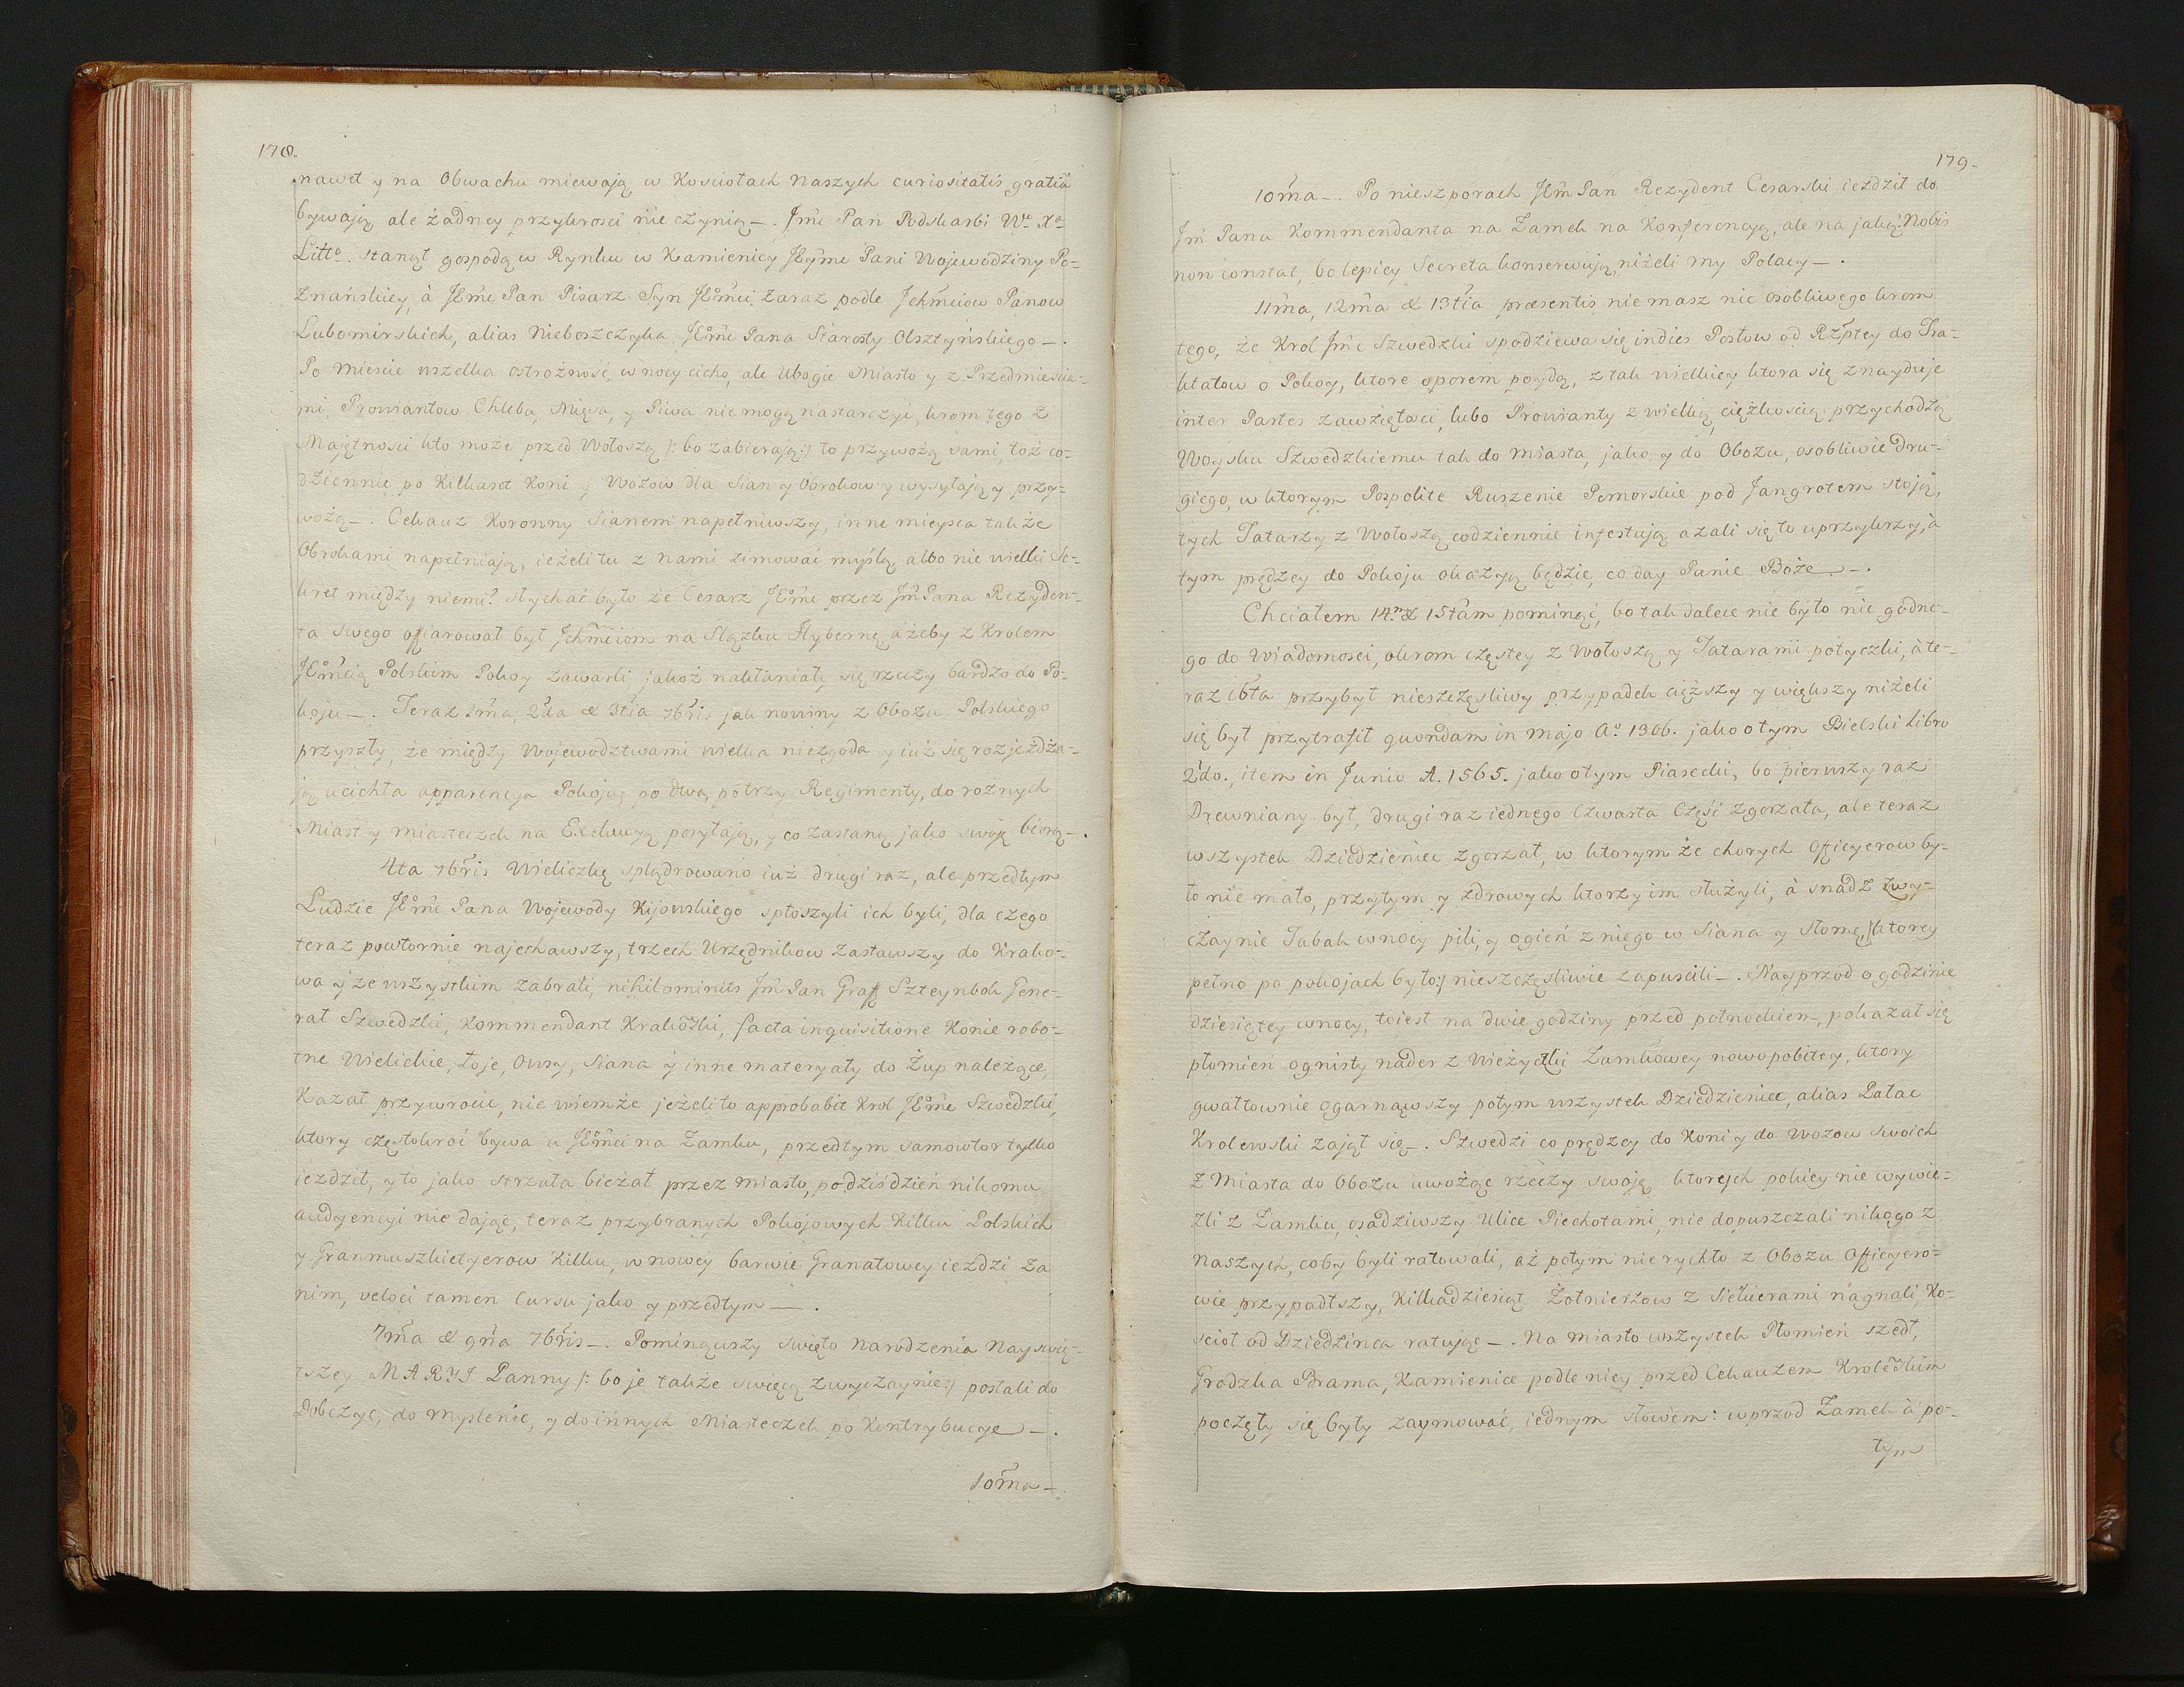 178.
nawet y na Obwachu miewają w Kosciołach Naszych curiositatis gratiâ
bywają ale żadney przykrosci nie czynią —. Jmć Pan Podskarbi Wo Xa
Litto. stanął gospodą w Rynku w Kamienicy JEyme Pani Wojewodziny Po-
znańskiey, à JEmc Pan Pisarz Syn JEomci zaraz podle Jchmciow Panow
Lubomirskich, alias Nieboszczyka JEome Pana Starosty Olsztyńskiego —.
Po Miescie wszelka ostrożność, w nocy cicho, ale Ubogie Miasto y z Przedmiescia-
mi, Prowiantow Chleba, Mięsa, y Piwa nie mogą nastarczyć, krom tego z
Majętnosci kto może przed Wołoszą /: bo zabierają :/ to przywożą sami, toż co-
dziennie po Kilkaset Koni y Wozow dla Sian y Obrokow y wysyłają y przy-
wożą —. Cekauz Koronny Sianem napełniwszy, inne mieysca także
Obrokami napełniają, ieżeli tu z nami zimować myślą, albo nie wielki Se-
kret między niemi? słychać było że Cesarz JEome przez Jm Pana Rezyden-
ta swego offiarował był Jchmciom na Slązku Hybernę, ażeby z Krolem
JEomcią Polskim Pokoy zawarli jakoż nakłaniały się rzeczy bardzo do Po-
koju —. Teraz 1ma, 2da & 3tia 7bris jak nowiny z Obozu Polskiego
przyszły, że między Wojewodztwami wielka niezgoda y iuż się rozjeżdża-
ją ucichła apparencya Pokoju, po dwa, po trzy Regimenty, do rożnych
Miast y miasteczek na Exekucyą posyłają, y co zastaną jako swoje biorą —.
4ta 7bris Wieliczkę splądrowano iuż drugi raz, ale przedtym
Ludzie JEome Pana Wojewody Kijowskiego spłoszyli ich byli, dla czego
teraz powtornie najechawszy, trzech Urzędnikow zastawszy do Krako-
wa y ze wszystkim zabrali, nihilominus Jm Pan Graff Szteynbok Gene-
rał Szwedzki, Kommendant Krakowski, facta inquisitione Konie robo-
tne Wielickie, Łoje, Owsy, Siana y inne materyały do Żup należące,
Kazał przywrocić, nie wiem że jeżeli to approbabit Krol JEome Szwedzki,
ktory częstokroć bywa u JEomci na Zamku, przedtym samowtor tylko
iezdził, y to jako strzała bieżał przez miasto, podziśdzień nikomu
audyencyi nie dając, teraz przybranych Pokojowych Kilku Polskich
y Granmuszkietyerow Kilku, w nowey barwie Granatowey iezdzi za
nim, veloci tamen Cursu jako y przedtym —.
7ma & 9na 7bris —. Pominąwszy swięto Narodzenia Nayswię-
tszey MARYI Panny /: bo je także swięcą zwyczaynie :/ posłali do
Dobczyc, do Myslenic, y do innych Miasteczek po Kontrybucye —.
10ma —
179.
10ma —. Po nieszporach JEm Pan Rezydent Cesarski iezdził do
Jm Pana Kommendanta na Zamek na Konferencyą, ale na jaką? Nobis
non constat, bo lepiey Secreta konserwują, niżeli my Polacy —.
11ma, 12ma & 13tia præsentis nie masz nic osobliwego krom
tego, że Krol Jmć Szwedzki spodziewa się indies Posłow od Rzptey do Tra-
ktatow o Pokoy, ktore oporem poydą, z tak wielkiey ktora się znayduje
inter Partes zawziętosci, lubo Prowianty z wielką ciężkoscią przychodzą
Woysku Szwedzkiemu tak do miasta, jako y do Obozu, osobliwie dru-
giego, w ktorym Pospolite Ruszenie Pomorskie pod Jangrotem stoją,
tych Tatarzy z Wołoszą codziennie infestują azali się to uprzykrzy, à
tym prędzey do Pokoju okazyą będzie, co day Panie Boże —.
Chciałem 14m & 15tam pominąć, bo tak dalece nie było nic godne-
go do Wiadomosci, okrom częstey z Wołoszą y Tatarami potyczki, à te-
raz 16ta przybył nieszczęsliwy przypadek cięższy y większy niżeli
się był przytrafił quondam in majo Ao. 1306. jako o tym Bielski Libro
2do., item in Junio A. 1565. jako o tym Piasecki, bo pierwszy raz
Drewniany był, drugi raz iednego Czwarta Część zgorzała, ale teraz
wszystek Dziedziéniec zgorzał, w ktorym że chorych Officyerow by-
ło nie mało, przytym y zdrowych ktorzy im służyli, à snadz zwy-
czaynie Tabak w nocy pili, y ogień z niego w Siana y Słomę, /: ktorey
pełno po pokojach było :/ nieszczęsliwie zapuscili —. Nayprzod o godzinie
dziesiątey w nocy, toiest na dwie godziny przed pułnockiem, pokazał się
płomień ognisty nader z Wieżyczki Zamkowey nowo pobitey, ktory
gwałtownie ogarnąwszy potym wszystek Dziedzieniec, alias Pałac
Krolewski zajął się —. Szwedzi co prędzey do Koni y do Wozow swoich
z Miasta do Obozu uwożąc rzeczy swoje, ktorych pokiey nie wywie-
zli z Zamku, osadziwszy Ulice Piechotami, nie dopuszczali nikogo z
Naszych, coby byli ratowali, aż potym nierychło z Obozu Officyero-
wie przypadłszy, Kilkadziesiąt Żołnierzow z Siekierami nagnali, Ko-
sciół od Dziedzinca ratując —. Na miasto wszystek Płomień szedł,
Grodzka Brama, Kamienice podle niey przed Cekauzem Krolewskim
poczęły się były zaymować, iednym słowem: wprzod Zamek à po-
tym